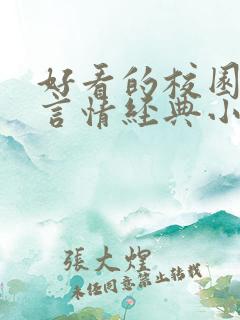 好看的校園
言情經典小
張大煌
未經同意禁止轉載